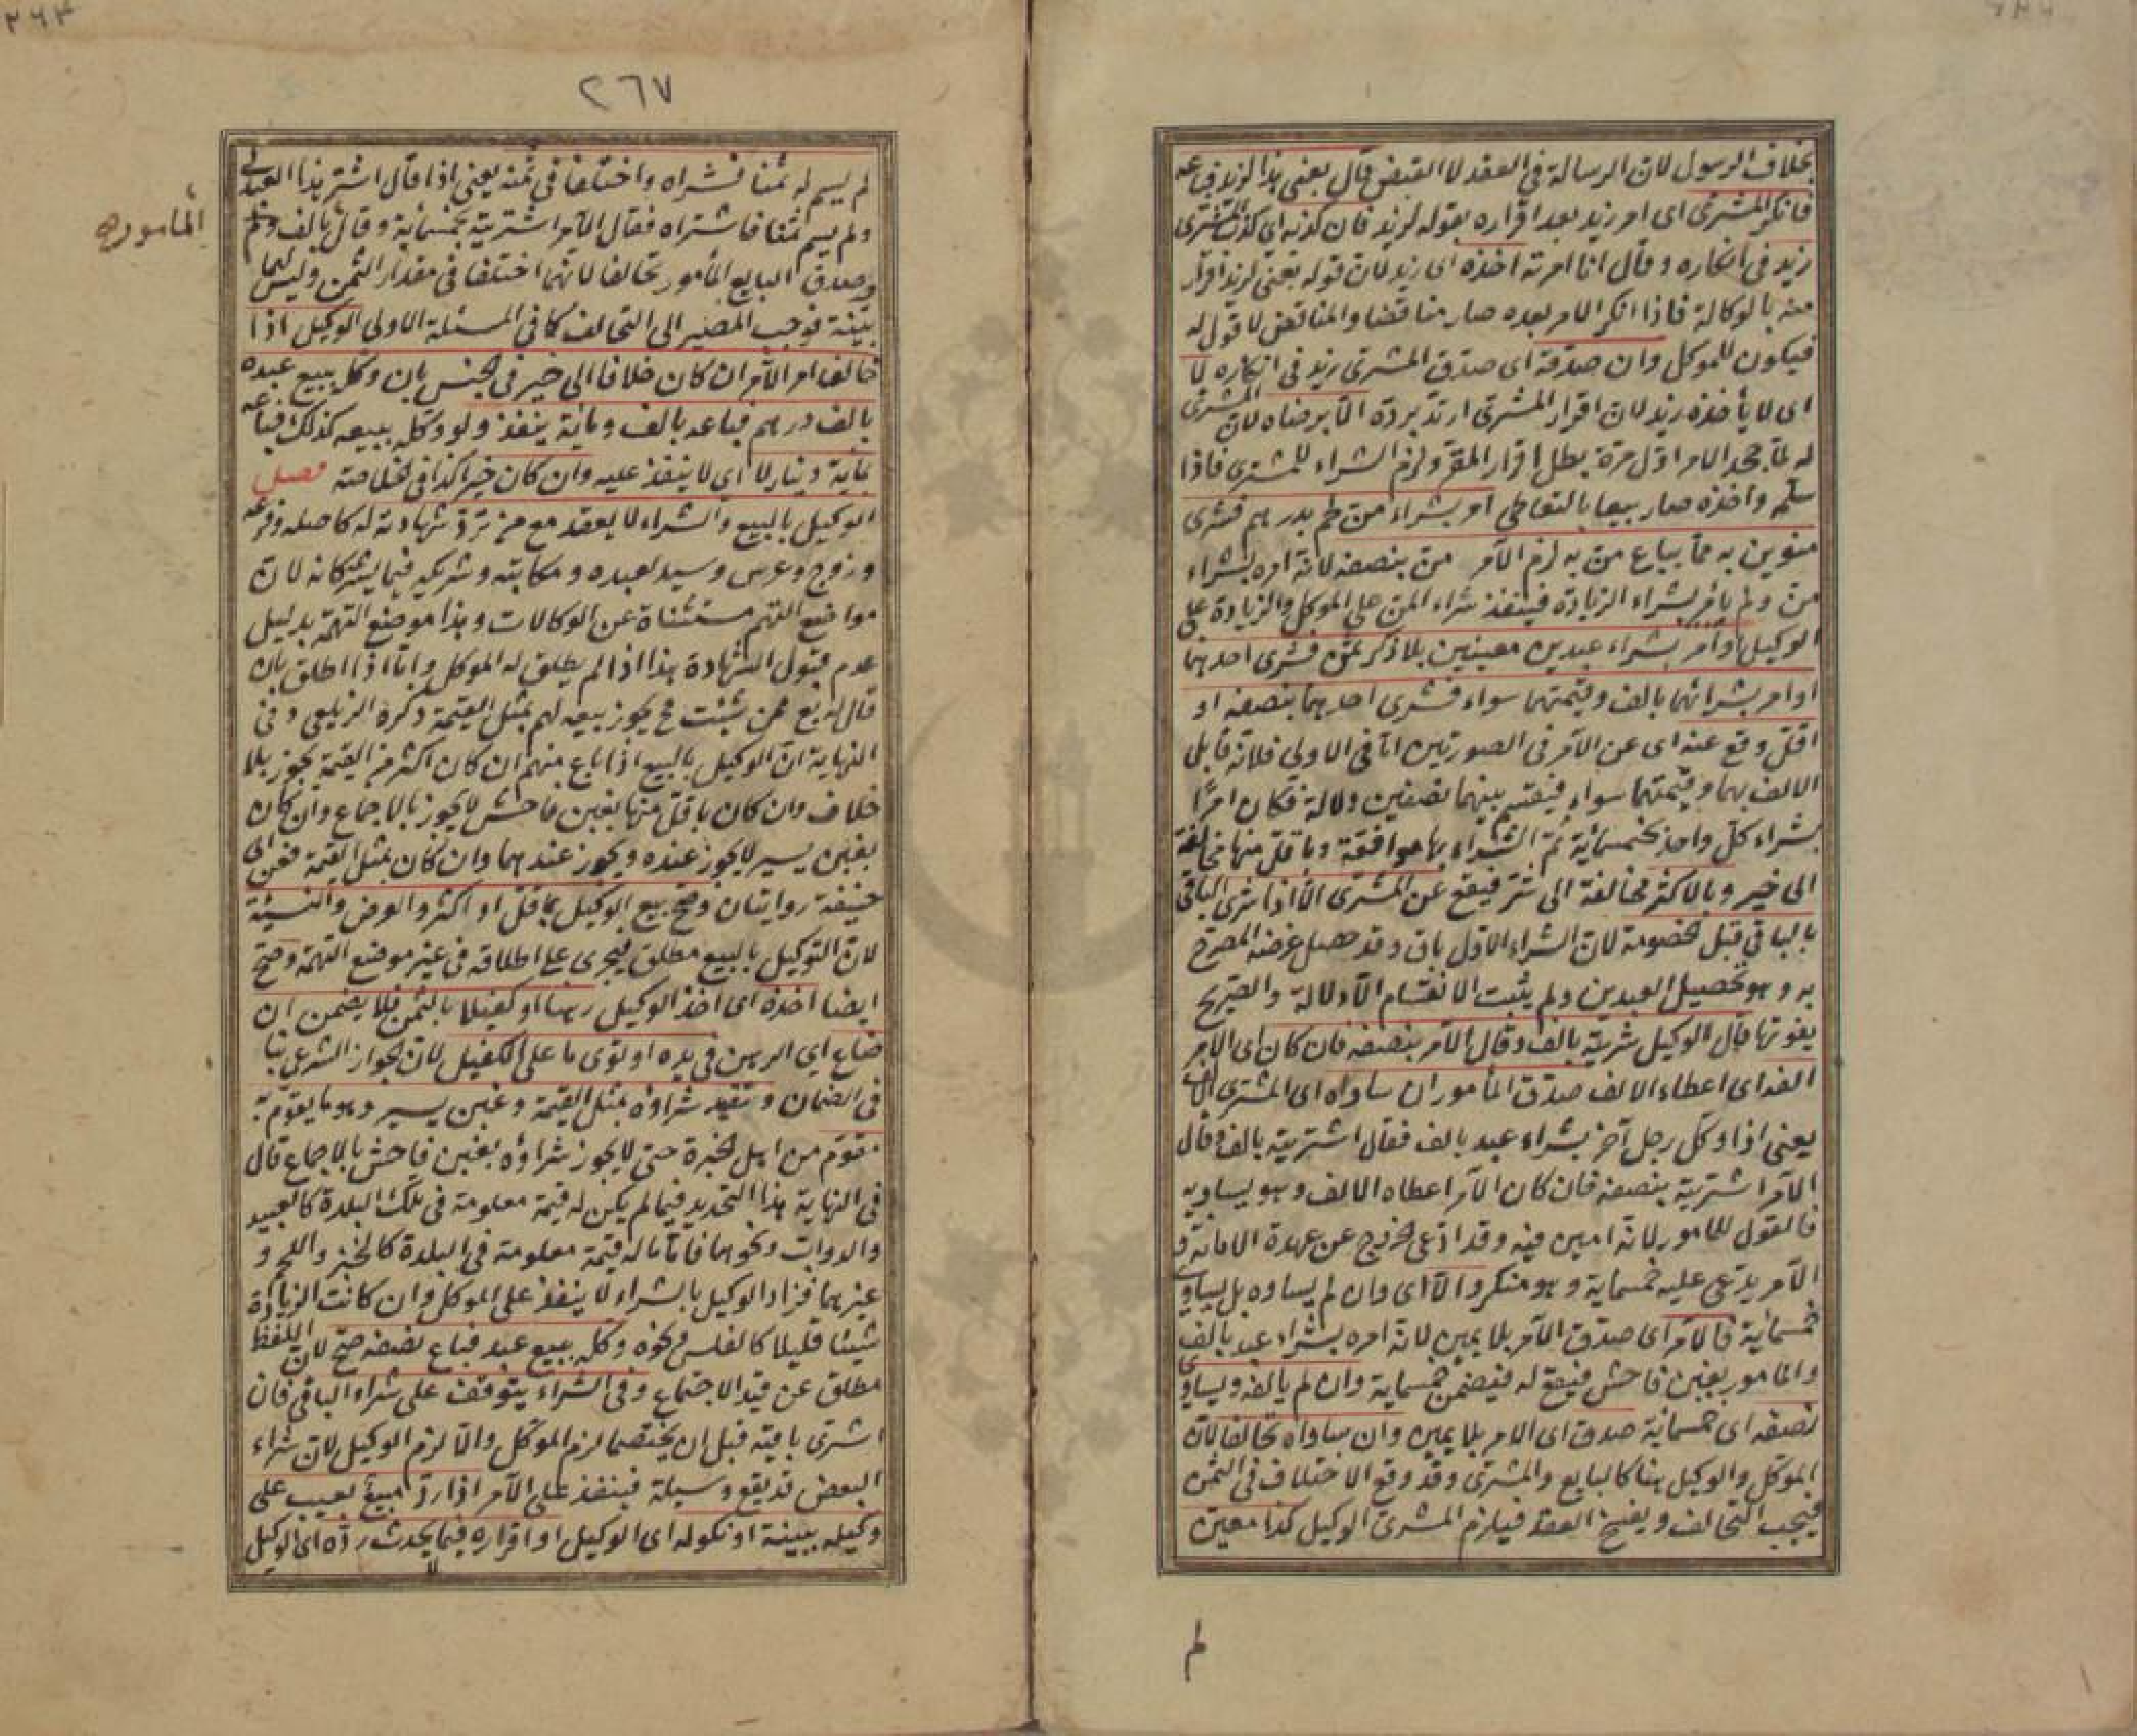 بخلاف الرسول لان الرسالة فى العقد لا القبض قال بعنى هذا لزيد فباعه
فانكر المشترى اى امر زيد بعد اقراره بقوله لزيد فان كذبه اى كذب المشترى
زيد فى انكاره وقال انا امرته اخذه اى زيد لان قوله بعنى لزيد اقرار
منه بالوكالة فاذا انكر الامر بعده صار مناقضا والمناقض لا قول له
فيكون للموكل وان صدقه اى صدق المشترى زيد فى انكاره لا
اى لا يأخذه زيد لان اقرار المشترى ارتد برده الا برضاه لان المشترى
له لما جحد الامر اول مرة بطل اقرار المقر ولزم الشراء للمشترى فاذا
سلمه واخذه صار بيعا بالتعاطى امر بشراء من لحم بدرهم فشرى
منوين به مما يباع من به لزم الآمر من بنصفه لانه امره بشراء
من ولم يأمر بشراء الزيادة فينفذ شراء المن على الموكل والزيادة على
الوكيل او امر بشراء عبدين معينين بلا ذكر ثمن فشرى احدهما
او امر بشرائهما بالف وقيمتهما سواء فشرى احدهما بنصفه او
اقل وقع عنه اى عن الآمر فى الصورتين اما فى الاولى فلانه قابل
الالف بهما وقيمتهما سواء فينقسم بينهما نصفين دلالة فكان امرا
بشراء كل واحد بخمسمائة ثم الشراء بها موافقة وباقل منها مخالفة
الى خير وبالاكثر مخالفة الى شر فيقع عن المشترى الا اذا شرى الباقى
بالباقى قبل الخصومة لان الشراء الاول باق وقد حصل غرضه المصرح
به وهو تحصيل العبدين ولم يثبت الانقسام الا دلالة والصريح
يفوتها قال الوكيل شريته بالف وقال الآمر بنصفه فان كان اى الآمر
الفه اى اعطاه الالف صدق المأمور ان ساواه اى المشترى الالف
يعنى اذا وكل رجل آخر بشراء عبد بالف فقال اشتريته بالف وقال
الآمر اشتريته بنصفه فان كان الآمر اعطاه الالف وهو يساويه
فالقول للمأمور لانه امين فيه وقد ادعى الخروج عن عهدة الامانة و
الآمر يدعى عليه خمسماية وهو منكر والا اى وان لم يساوه بل يساوى
خمسمائة فالآمر اى صدق الآمر بلا يمين لانه امره بشراء عبد بالف
والمأمور بغبن فاحش فيقع له فيضمن خمسماية وان لم يالفه ويساوى
نصفه اى خمسمائة صدق اى الامر بلا يمين وان ساواه تحالفا لان
الموكل والوكيل هنا كالبايع والمشترى وقد وقع الاختلاف فى الثمن
فيجب التحالف ويفسخ العقد فيلزم المشترى الوكيل كذا معين
٢٦٧
لم يسم له ثمنا فشراه واختلفا فى ثمنه يعنى اذا قال اشتر هذا العبد لى
ولم يسم ثمنا فاشتراه فقال الآمر اشتريته بخمسماية وقال بالف
وصدق البايع المأمور تحالفا لانهما اختلفا فى مقدار الثمن وليس لهما
بينة فوجب المصير الى التحالف كما فى المسئلة الاولى الوكيل اذا
خالف امر الآمر ان كان خلافا الى خير فى الجنس بان وكل ببيع عبده
بالف درهم فباعه بالف وماية ينفذ ولو وكله ببيعه كذلك فباعه
بماية دينار لا اى لا ينفذ عليه وان كان خيرا كذا فى الخلاصة فصل
الوكيل بالبيع والشراء لا يعقد مع من ترد شهادته له كاصله وفرعه
وزوج وعرس وسيد لعبده ومكاتبه وشريكه فيما يشتركانه لان
مواضع التهم مستثناة عن الوكالات وهذا موضع التهمة بدليل
عدم قبول الشهادة هذا اذا لم يطلق له الموكل واما اذا اطلق بان
قال له بع ممن شئت فح يجوز بيعه لهم بمثل القيمة ذكره الزيلعى وفى
النهاية ان الوكيل بالبيع اذا باع منهم ان كان اكثر من القيمة يجوز بلا
خلاف وان كان باقل منها بغبن فاحش لا يجوز بالاجماع وان كان
بغبن يسير لا يجوز عنده ويجوز عندهما وان كان بمثل القيمة فعن ابى
حنيفة روايتان وصح بيع الوكيل بما قل او اكثر والعرض والنسيئة
لان التوكيل بالبيع مطلق فيجرى على اطلاقه فى غير موضع التهمة وصح
ايضا اخذه اى اخذ الوكيل رهنا او كفيلا بالثمن فلا يضمن ان
ضاع اى الرهن فى يده او توى ما على الكفيل لان الجواز الشرعى ينا
فى الضمان وتقيد شراؤه بمثل القيمة وغبن يسير وهو ما يقوم به
مقوم من اهل الخبرة حتى لا يجوز شراؤه بغبن فاحش بالاجماع قال
فى النهاية هذا التحديد فيما لم يكن له قيمة معلومة فى تلك البلدة كالعبيد
والدواب ونحوهما فاما ما له قيمة معلومة فى البلدة كالخبز واللحم و
غيرهما فزاد الوكيل بالشراء لا ينفذ على الموكل وان كانت الزيادة
شيئا قليلا كالفلس ونحوه وكله ببيع عبد فباع نصفه صح لان اللفظ
مطلق عن قيد الاجتماع وفى الشراء يتوقف على شراء الباقى فان
اشترى باقيه قبل ان يختصما لزم الموكل والا لزم الوكيل لان شراء
البعض قد يقع وسيلة فينفذ على الآمر اذا رد مبيع بعيب على
وكيله ببينة او نكوله اى الوكيل او اقراره فيما يحدث رده اى الوكيل
المأموره
لم